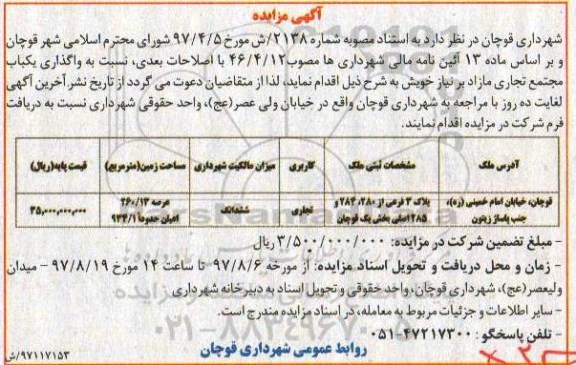 آگهی مزایده
شهرداری قوچان در نظر دارد به استناد مصوبه شماره ۲۱۳۸/ش مورخ ۹۷/۴/۵ شورای محترم اسلامی شهر قوچان
و بر اساس ماده ۱۳ آئین نامه مالی شهرداری ها مصوب ۴۶/۴/۱۲ با اصلاحات بعدی، نسبت به واگذاری یکباب
مجتمع تجاری مازاد بر نیاز خویش به شرح ذیل اقدام نماید، لذا از متقاضیان دعوت می گردد از تاریخ نشر آخرین آگهی
لغایت ده روز با مراجعه به شهرداری قوچان واقع در خیابان ولی عصر(عج)، واحد حقوقی شهرداری نسبت به دریافت
فرم شرکت در مزایده اقدام نمایند.
آدرس ملک مشخصات ثبتی ملک کاربری میزان مالکیت شهرداری مساحت زمین(مترمربع) قیمت پایه(ریال)
قوچان، خیابان امام خمینی (ره)، پلاک ۳ فرعی از ۲۸۰، ۲۸۴ و تجاری ششدانگ عرصه ۲۶۰/۱۳ ۳۵,۰۰۰,۰۰۰,۰۰۰
جنب پاساژ زیتون ۲۸۵ اصلی بخش یک قوچان اعیان حدودا ۹۳۴/۱
- مبلغ تضمین شرکت در مزایده: ۳/۵۰۰/۰۰۰/۰۰۰ ریال
- زمان و محل دریافت و تحویل اسناد مزایده: از مورخه ۹۷/۸/۶ تا ساعت ۱۴ مورخ ۹۷/۸/۱۹ - میدان
ولیعصر(عج)، شهرداری قوچان، واحد حقوقی و تحویل اسناد به دبیرخانه شهرداری
- سایر اطلاعات و جزئیات مربوط به معامله، در اسناد مزایده مندرج است.
- تلفن پاسخگو: ۴۷۲۱۷۳۰۰-۰۵۱
روابط عمومی شهرداری قوچان
۹۷۱۱۷۱۵۳/ش
۰۲۱-۸۸۳۴۹۶۷۰